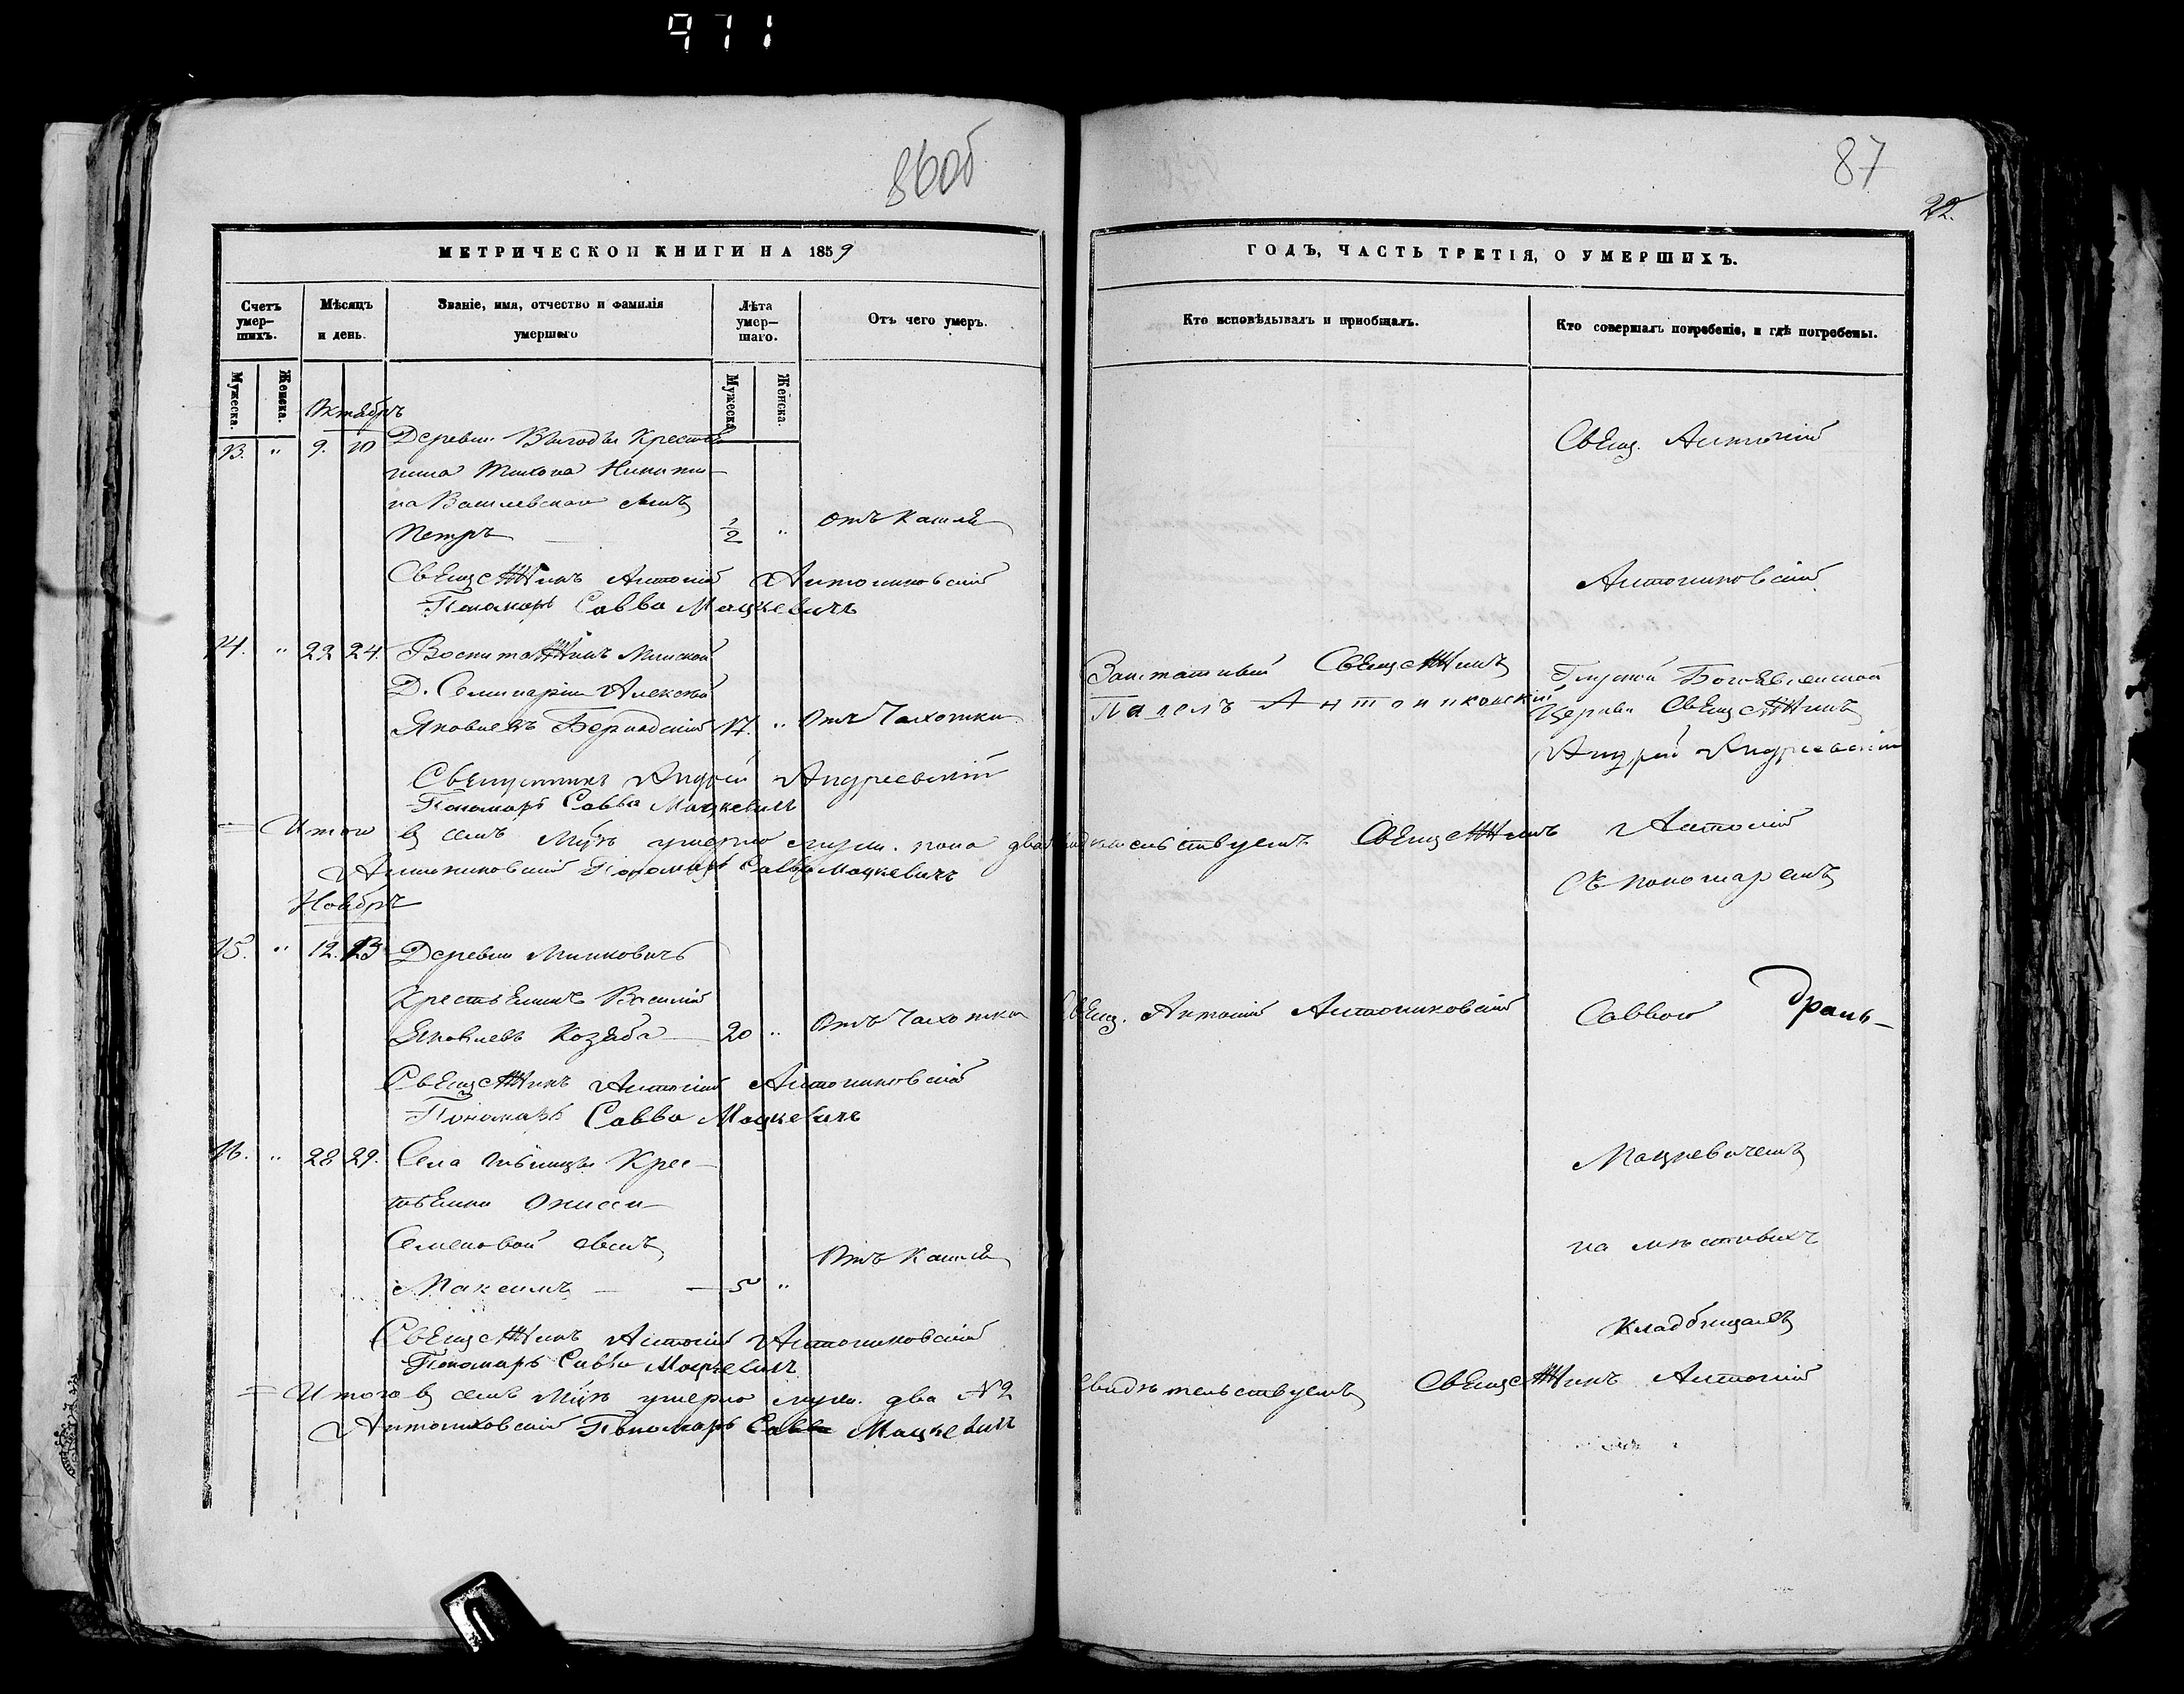 971
86 об
87
22.
МЕТРИЧЕСКОЙ КНИГИ НА 1859
Счетъ умер-шихъ.
Мѣсяцъ и день.
Званіе, имя, отчество и фамилія умершаго
Лѣта умер-шаго.
Отъ чего умеръ.
Мужеска.
Женска.
Мужеска.
Женска.
Октябрь
13. " 9. 10 Деревни Выгоды Крестья
нина Тихона Никити-
на Василевскаго сынъ
Петръ — ½ " отъ Кашля
Священникъ Антоній Антониковскій
Пономарь Савва Мацкевичъ
14. " 22 24. Воспитанникъ Минской
Д. Семинаріи Алексѣй
Яковлевъ Бернадскій 17. " Отъ Чахотки
Священникъ Андрей Андреевскій
Пономарь Савва Мацкевичъ
= Итого въ семъ м-цѣ умерло муж. пола два
Антониковскій Пономарь Савва Мацкевичъ
Ноябрь
15. " 12. 13 Деревни Минковичъ
Крестьянинъ Василій
Яковлевъ Козяба — 20 " Отъ Чахотки
Священникъ Антоній Антониковскій
Пономарь Савва Мацкевичъ
16. " 28 29. Села Крес-
тьянки Ониси-
Семеновой сынъ
Максимъ — 5 " Отъ Кашля
Священникъ Антоній Антониковскій
Пономарь Савва Мацкевичъ
= Итого въ семъ м-цѣ умерло муж. два № 2
Антониковскій Пономарь Савва Мацкевичъ
ГОДЪ, ЧАСТЬ ТРЕТІЯ, О УМЕРШИХЪ.
Кто исповѣдывалъ и пріобщалъ.
Кто совершалъ погребеніе, и гдѣ погребены.
Свящ. Антоній
Антониковскій
Заштатный Священникъ
Павелъ Антониковскій
Глуской Богоявленской
Церкви Священникъ
Андрей Андреевскій
свидѣтельствуемъ Священникъ Антоній
Съ пономаремъ
Свящ. Антоній Антониковскій
Саввою
Мацкевичемъ
на мѣстныхъ
Кладбищахъ
свидѣтельствуемъ Священникъ Антоній